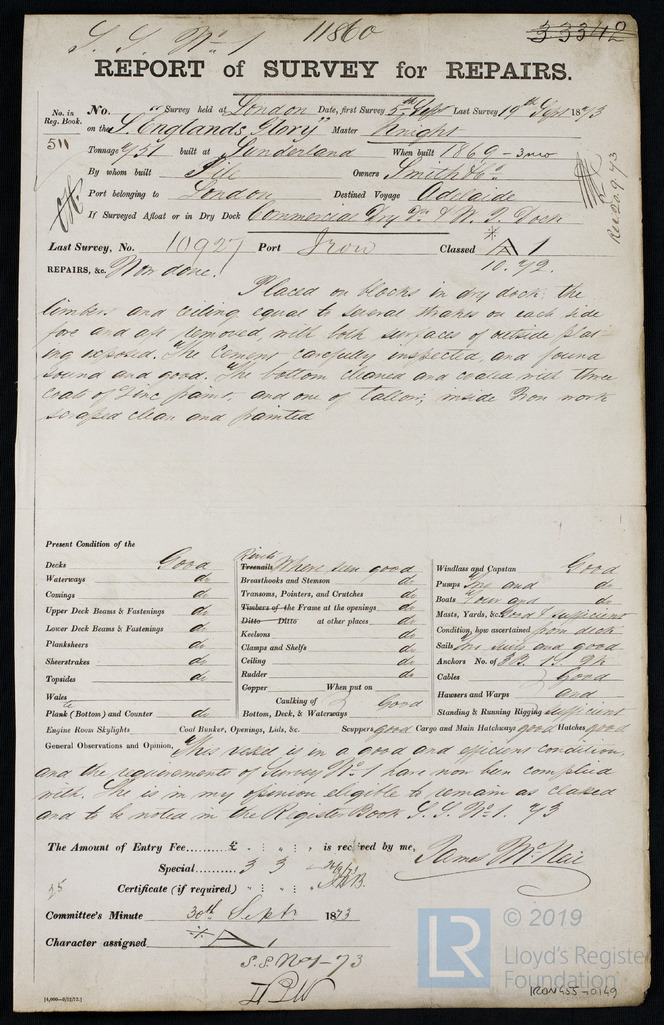 S. S. No. 1 11860 33342
REPORT of SURVEY for REPAIRS.
No. in Reg. Book. No. Survey held at London Date, first Survey 5th Sept Last Survey 19th Sept 1873
511 on the "S. Englands Glory" Master Knight
Tonnage 751 built at Sunderland When built 1869 - 3mo
By whom built Pile Owners Smith & Co.
Port belonging to London Destined Voyage Adelaide
If Surveyed Afloat or in Dry Dock Commercial Dry Dk & W. I. Dock
Rec 20.9.73
Last Survey, No. 10927 Port Iron Classed A 1
10.72.
REPAIRS, &c. Now done.
Placed on blocks in dry dock; the
limbers and ceiling equal to several strakes on each side
fore and aft removed, with both surfaces of outside plat-
ing exposed. The Cement carefully inspected, and found
sound and good. The bottom cleaned and coated with three
coats of Zinc paint, and one of tallow; inside Iron work
scraped clean and painted
Present Condition of the
Decks Good
Waterways do
Comings do
Upper Deck Beams & Fastenings do
Lower Deck Beams & Fastenings do
Planksheers do
Sheerstrakes do
Topsides do
Wales
Plank (Bottom) and Counter do
Rivets
Treenails Where seen good
Breasthooks and Stemson do
Transoms, Pointers, and Crutches do
Timbers of the Frame at the openings do
Ditto Ditto at other places do
Keelsons do
Clamps and Shelfs do
Ceiling do
Rudder do
Copper When put on
Caulking of
Bottom, Deck, & Waterways Good
Windlass and Capstan Good
Pumps and do
Boats Four and do
Masts, Yards, &c. Good & sufficient
Condition, how ascertained from deck
Sails suits and good
Anchors No. of 3B. 1S. 2K
Cables good
Hawsers and Warps and
Standing & Running Rigging sufficient
Engine Room Skylights Coal Bunker, Openings, Lids, &c. Scuppers good Cargo and Main Hatchways good Hatches good
General Observations and Opinion, This vessel is in a good and efficient condition,
and the requirements of Survey No. 1 have now been complied
with. She is in my opinion eligible to remain as classed
and to be noted in the Register Book S.S. No. 1. 73
The Amount of Entry Fee £ " : " : " is received by me, James McNeil
Special 3 3
25 Certificate (if required) " : " : "
Committee's Minute 30th Septr 1873
Character assigned A 1
S.S. No 1-73
[4,000-9/12/72.]
LR © 2019
Lloyd's Register
Foundation
IRON455-0149